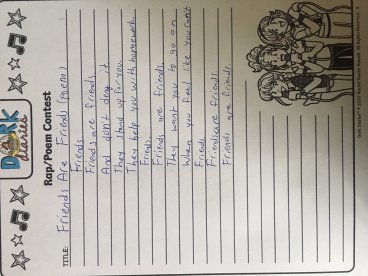 DORK
diaries
Rap/Poem Contest
TITLE: Friends Are Friends (poem)
Friends.
Friends are friends.
And don't deny it.
They stand up for you.
They help you with homework.
Friends.
Friends are friends.
They want you to go on
When you feel like you can't
Friends.
Friends are friends.
Friends are friends.